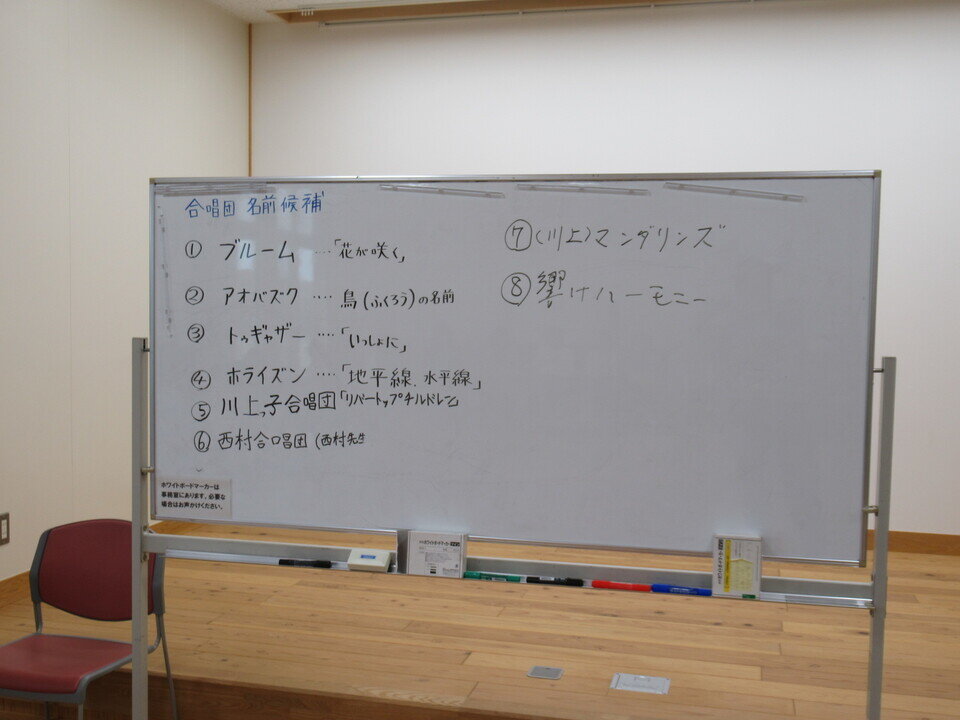 合唱団 名前候補
① ブルーム ‥‥「花が咲く」
② アオバズク ‥‥ 鳥(ふくろう)の名前
③ トゥギャザー ‥‥「いっしょに」
④ ホライズン ‥‥「地平線、水平線」
⑤ 川上っ子合唱団「リバートップチルドレン」
⑥ 西村合唱団 (西村先生
⑦ (川上)マンダリンズ
⑧ 響けハーモニー
ホワイトボードマーカーは
事務室にあります。必要な
場合はお声かけください。
ホワイトボードマーカー